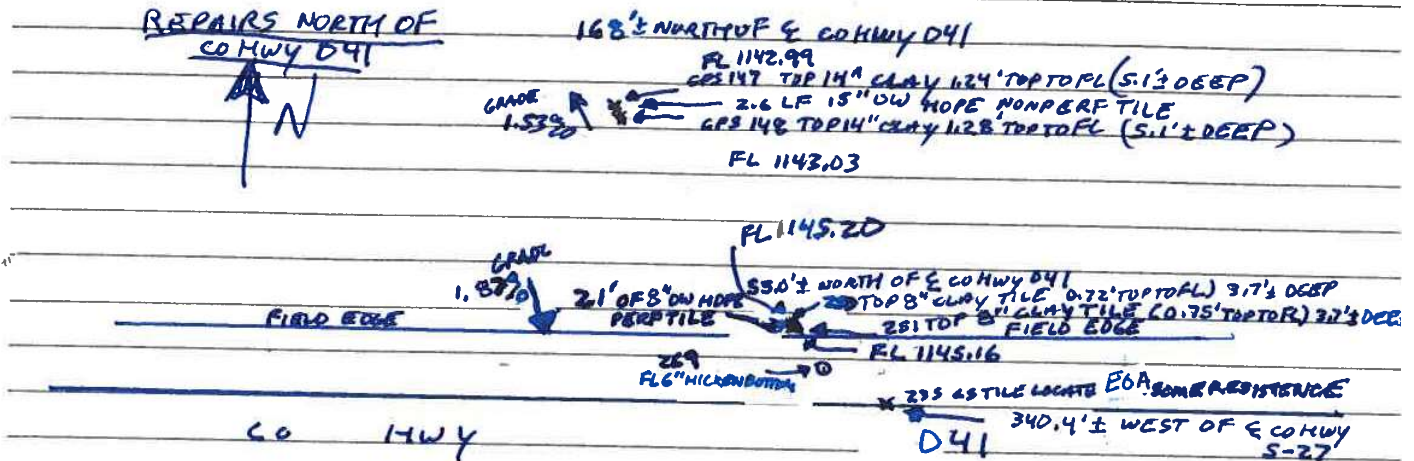 REPAIRS NORTH OF
CO HWY D41
N
168'± NORTH OF ℄ CO HWY D41
FL 1142.99
GPS 147 TOP 14" CLAY 1.24' TOP TO FL (5.1'± DEEP)
2.6 LF 15" DW HDPE NONPERF TILE
GPS 148 TOP 14" CLAY 1.28' TOP TO FL (5.1'± DEEP)
GRADE
1.53%
FL 1143.03
FL 1145.20
GRADE
1.87%
2.1' OF 8" DW HDPE
PERF TILE
55.0'± NORTH OF ℄ CO HWY D41
TOP 8" CLAY TILE 0.72' TOP TO FL) 3.7'± DEEP
281 TOP 8" CLAY TILE (0.75' TOP TO FL) 3.7'± DEE
FIELD EDGE
FIELD EDGE
FL 1145.16
269
FL 6" HICKENBOTTOM
295 TILE LOCATE EOA SOME RESISTENCE
340.4'± WEST OF ℄ CO HWY
S-27
CO HWY D41